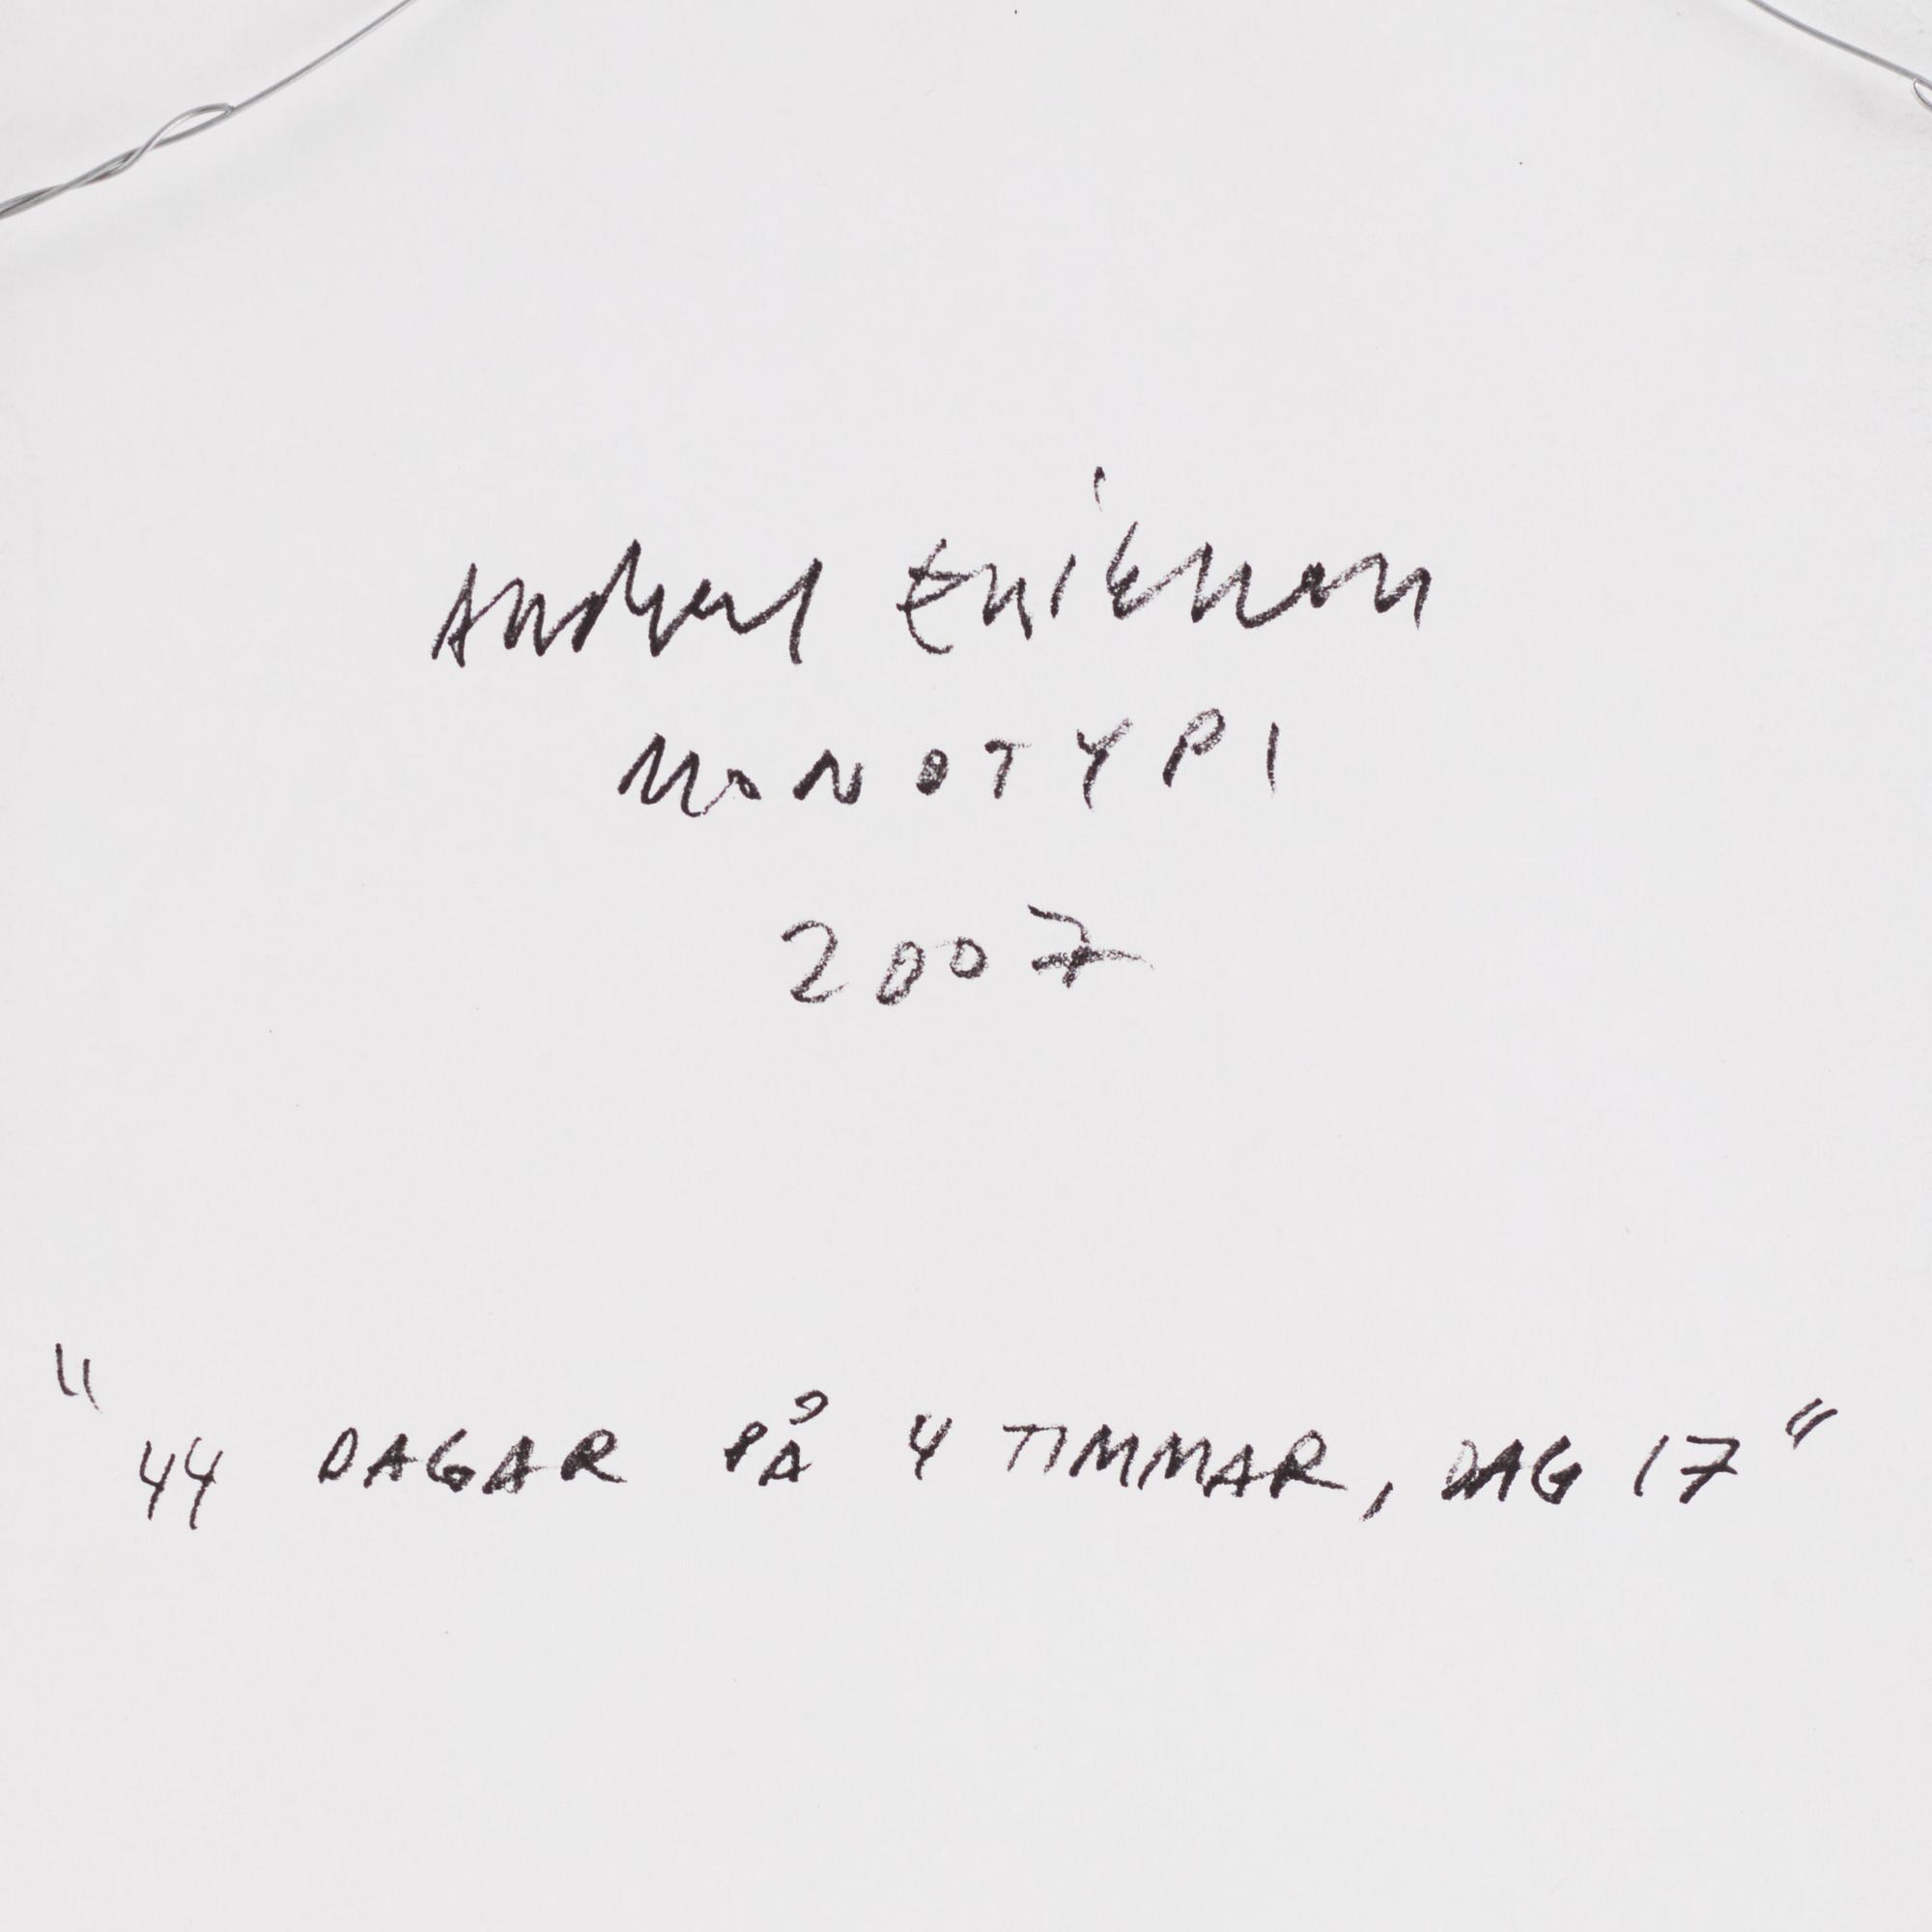 Andreas Eriksson
MONOTYPI
2007
"44 DAGAR PÅ 4 TIMMAR, DAG 17"